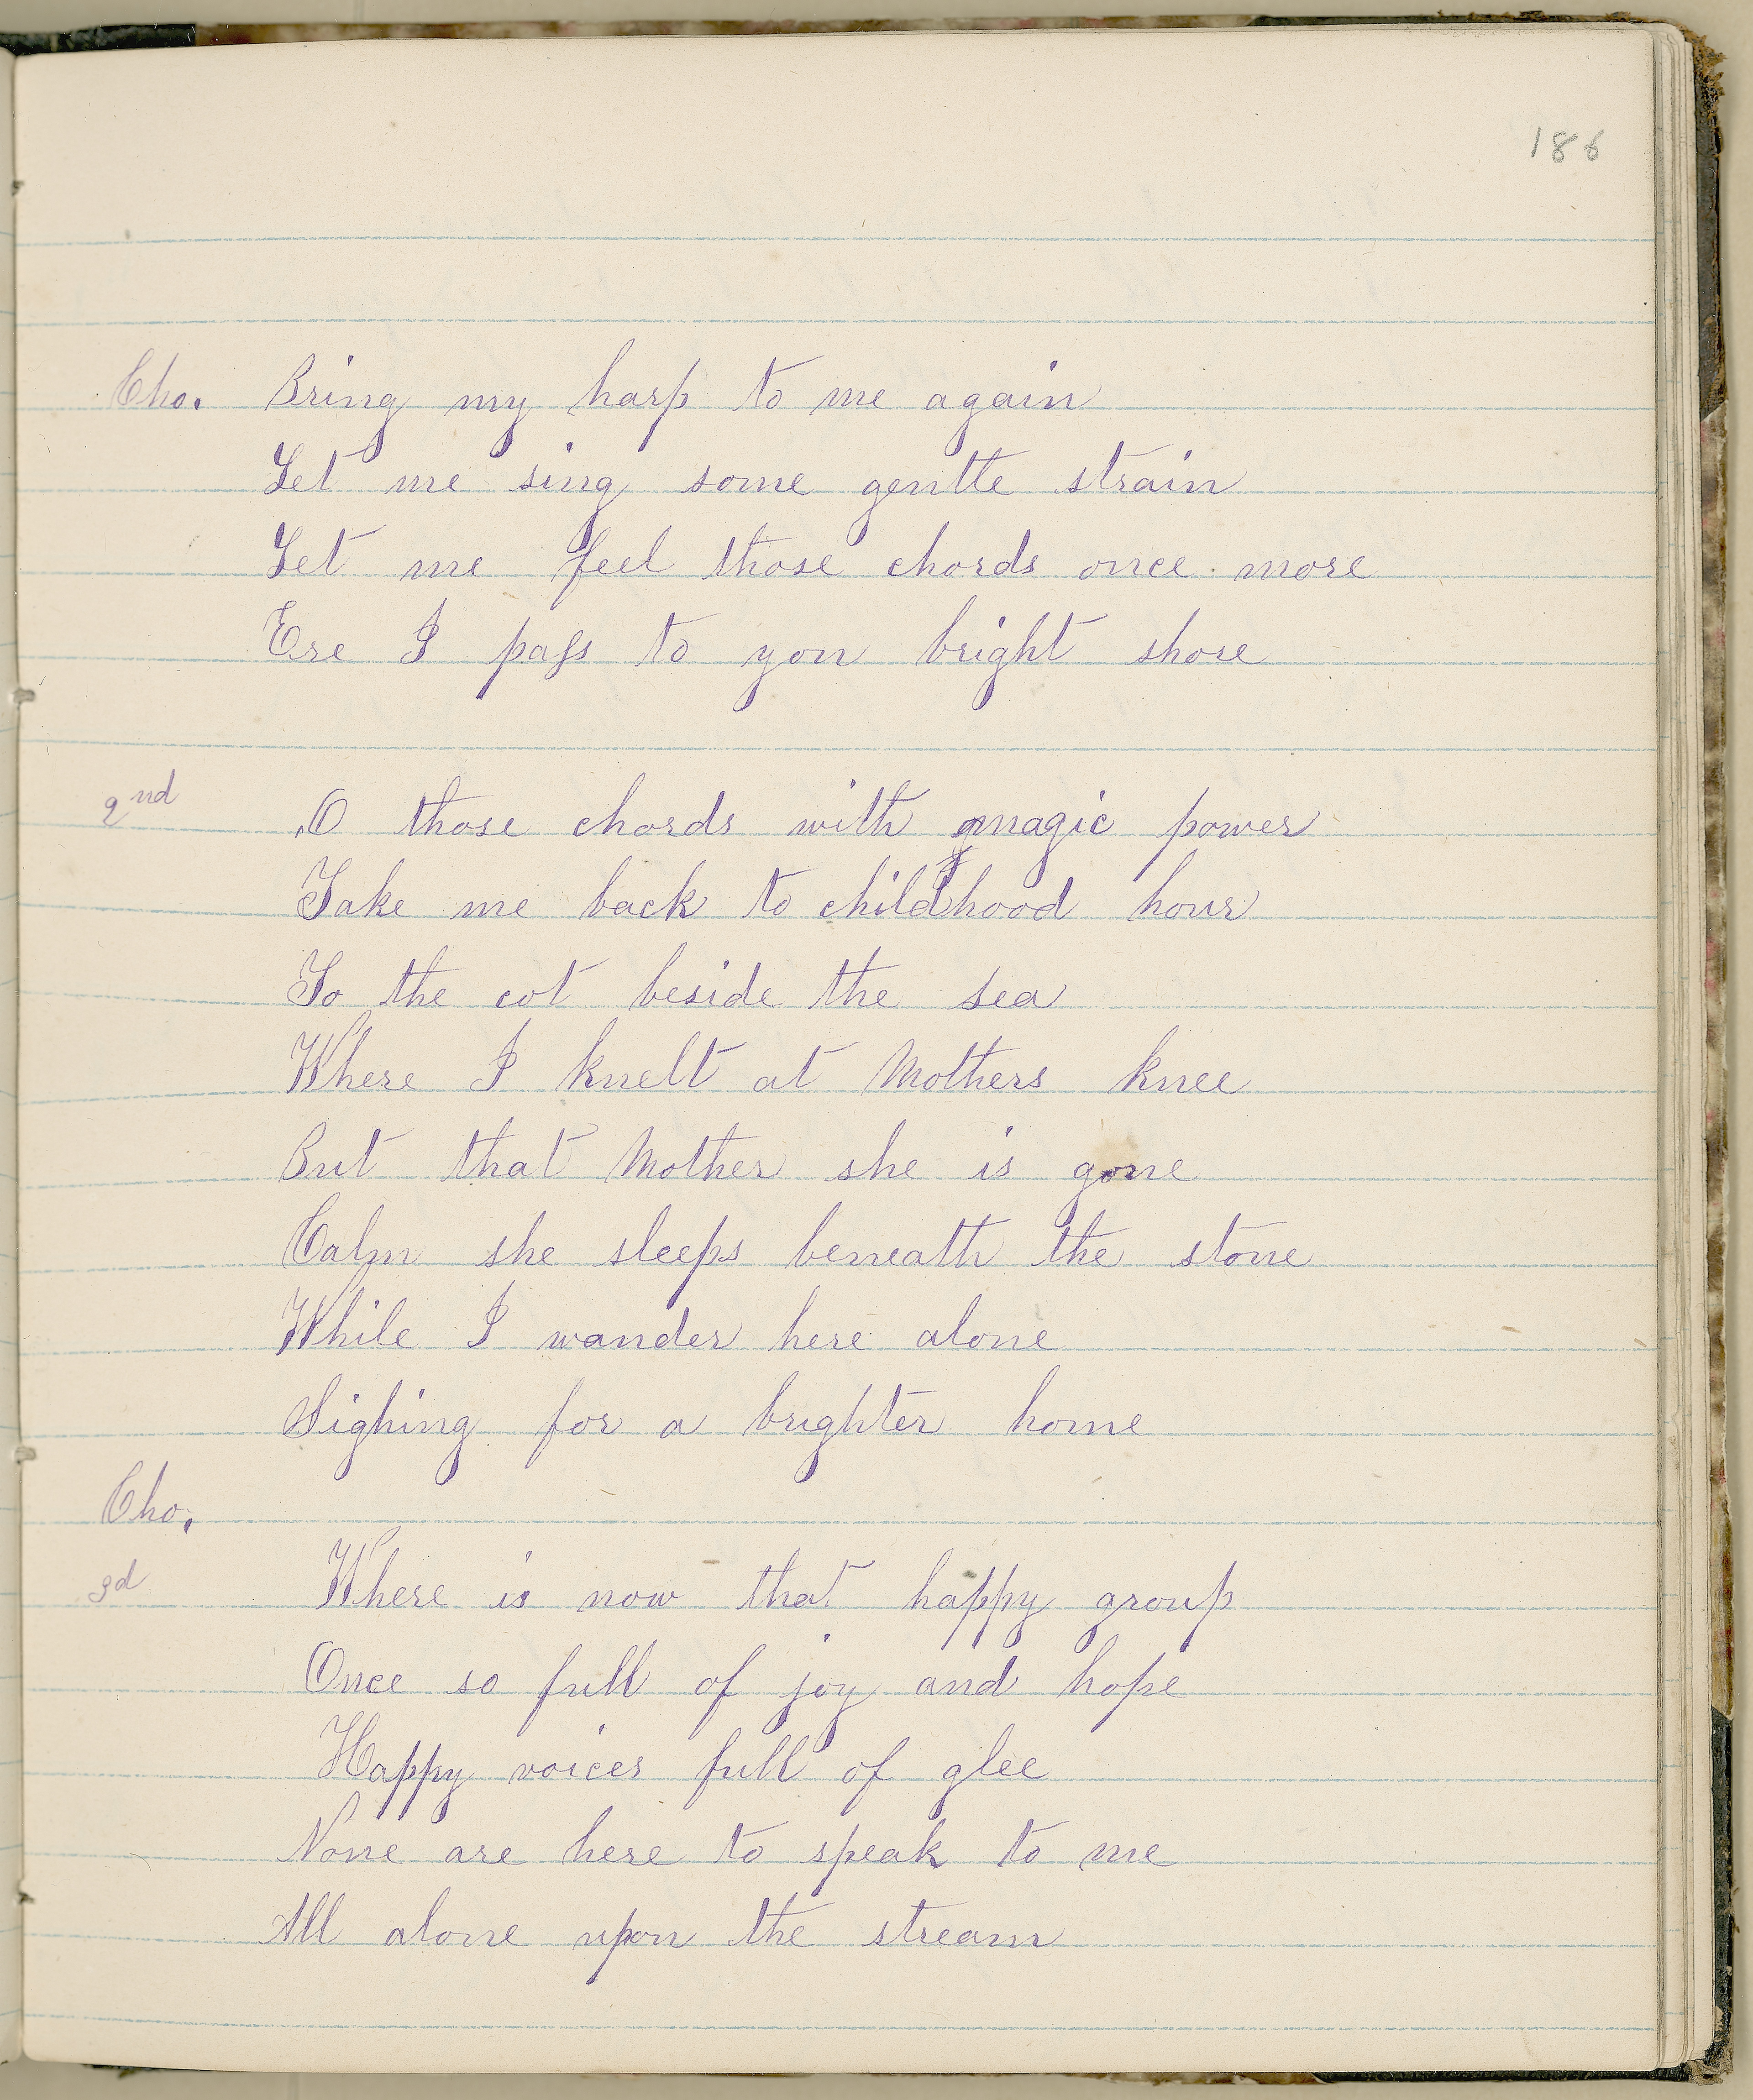 186
Cho. Bring my harp to me again
Let me sing some gentle strain
Let me feel those chords once more
Ere I pass to yon bright shore
2nd O those chords with magic power
Take me back to childhood hour
To the cot beside the sea
Where I knelt at Mothers knee
But that Mother she is gone
Calm she sleeps beneath the stone
While I wander here alone
Sighing for a brighter home
Cho.
3d Where is now that happy group
Once so full of joy and hope
Happy voices full of glee
None are here to speak to me
All alone upon the stream